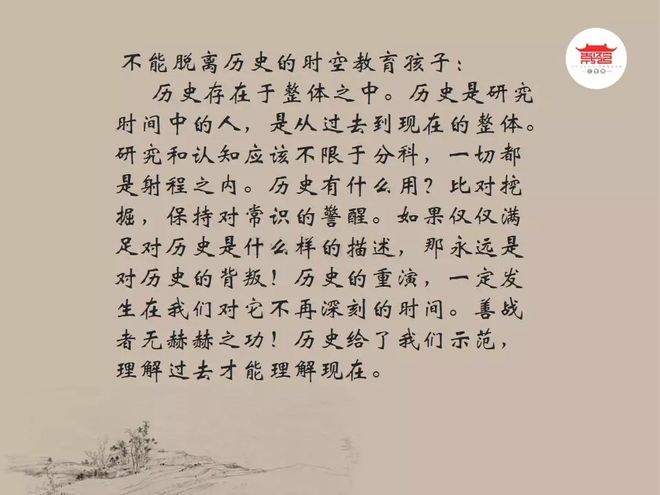 不能脱离历史的时空教育孩子：
历史存在于整体之中。历史是研究
时间中的人，是从过去到现在的整体。
研究和认知应该不限于分科，一切都
是射程之内。历史有什么用？比对挖
掘，保持对常识的警醒。如果仅仅满
足对历史是什么样的描述，那永远是
对历史的背叛！历史的重演，一定发
生在我们对它不再深刻的时间。善战
者无赫赫之功！历史给了我们示范，
理解过去才能理解现在。